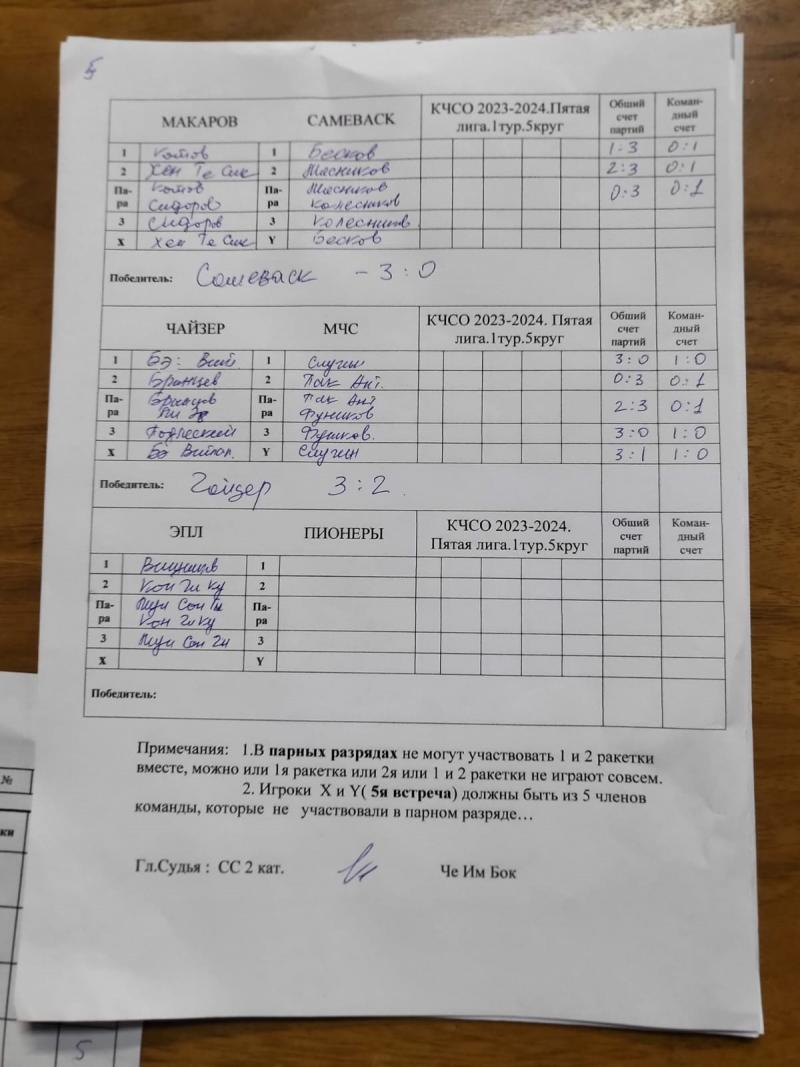 5
МАКАРОВ САМЕВАСК КЧСО 2023-2024.Пятая лига.1тур.5круг Общий счет партий Коман-дный счет
1 Котов 1 Бесков 1:3 0:1
2 Хен Те Сик 2 Мясников 2:3 0:1
Па-ра Котов Па-ра Мясников 0:3 0:1
Сидоров Колесников
3 Сидоров 3 Колесников
X Хен Те Сик Y Бесков
Победитель: Самеваск - 3:0
ЧАЙЗЕР МЧС КЧСО 2023-2024. Пятая лига.1тур.5круг Общий счет партий Коман-дный счет
1 1 3:0 1:0
2 2 Пак Ант. 0:3 0:1
Па-ра Па-ра Пак Ант 2:3 0:1
3 3 3:0 1:0
X Y 3:1 1:0
Победитель: 3:2
ЭПЛ ПИОНЕРЫ КЧСО 2023-2024. Пятая лига.1тур.5круг Общий счет партий Коман-дный счет
1 1
2 Кон Ги Ку 2
Па-ра Па-ра
Кон Ги Ку
3 3
X Y
Победитель:
Примечания: 1.В парных разрядах не могут участвовать 1 и 2 ракетки
вместе, можно или 1я ракетка или 2я или 1 и 2 ракетки не играют совсем.
2. Игроки X и Y( 5я встреча) должны быть из 5 членов
команды, которые не участвовали в парном разряде…
Гл.Судья : СС 2 кат. Че Им Бок
№
ки
5